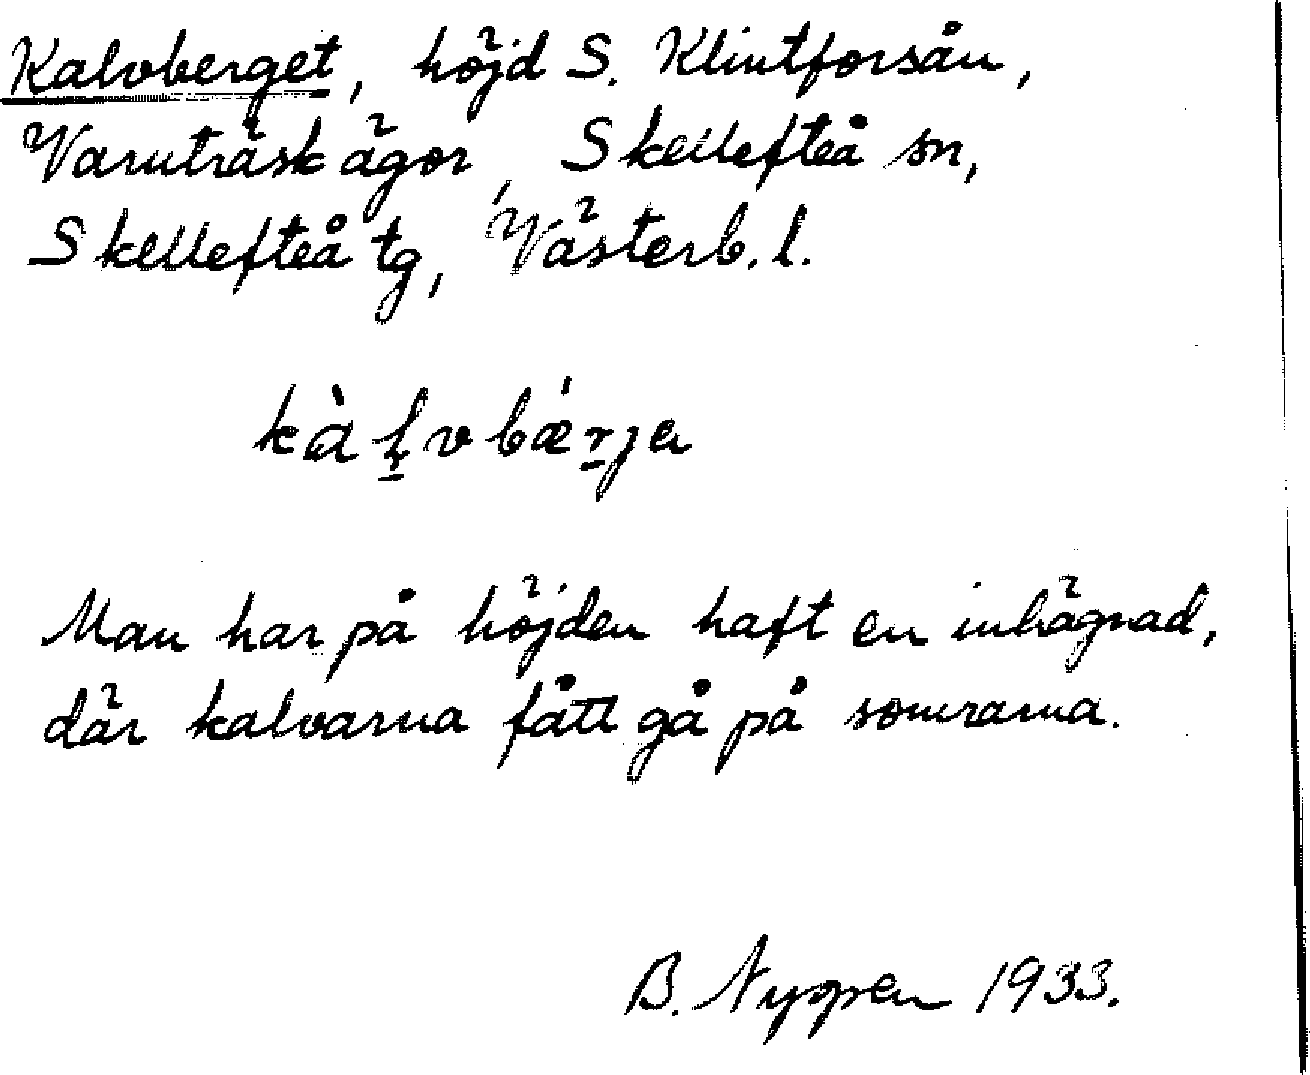 Kalvberget, höjd S. Klintforsån,
Varuträsk ägor, Skellefteå sn,
Skellefteå tg, Västerb. l.
kàḽvbǽr̠ja
Man har på höjden haft en inhägnad,
där kalvarna fått gå på somrarna.
B. Nygren 1933.